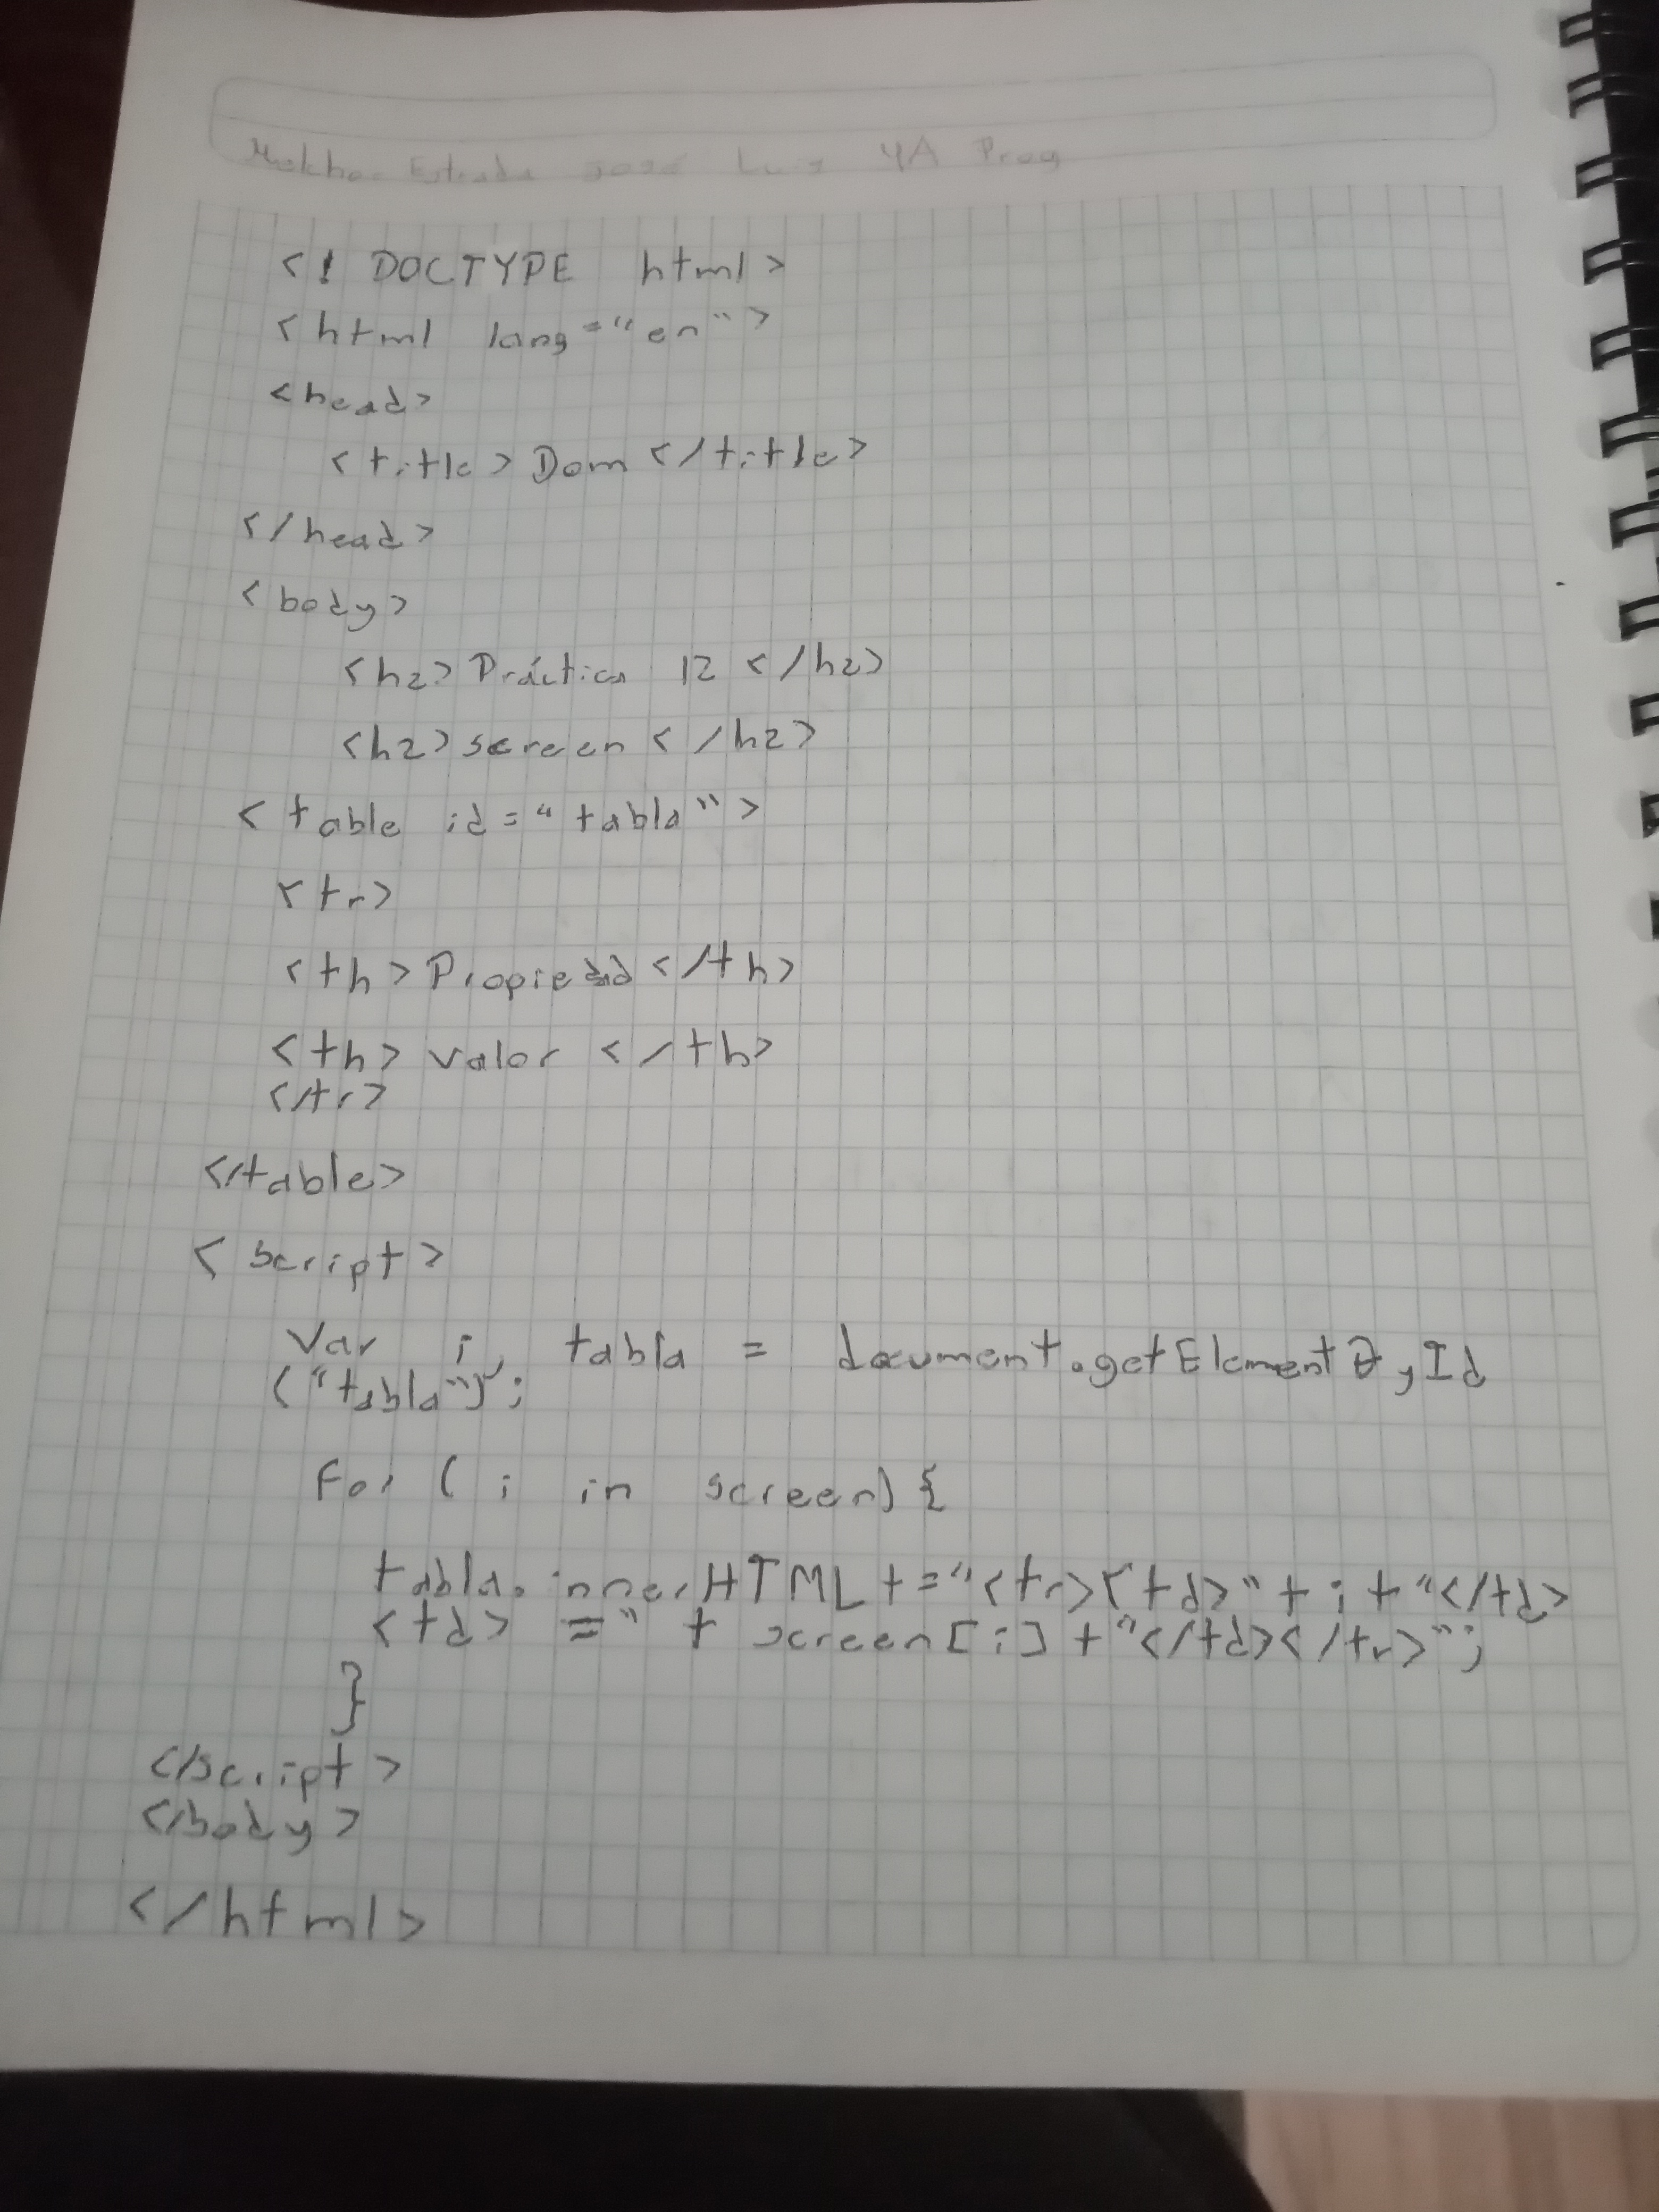 Estrada José Luis 4A Prog
<! DOCTYPE html>
<html lang="en">
<head>
<title>Dom</title>
</head>
<body>
<h2>Práctica 12 </h2>
<h2>screen< /h2>
< table id="tabla">
<tr>
<th>Propiedad</th>
<th> valor </th>
</tr>
</table>
< script >
Var i, tabla = document.getElementById
("tabla");
For ( i in screen){
tabla.innerHTML +="<tr><td>"+i+"</td>
<td> =" + screen[i] +"</td></tr>";
}
</script >
</body >
</html>